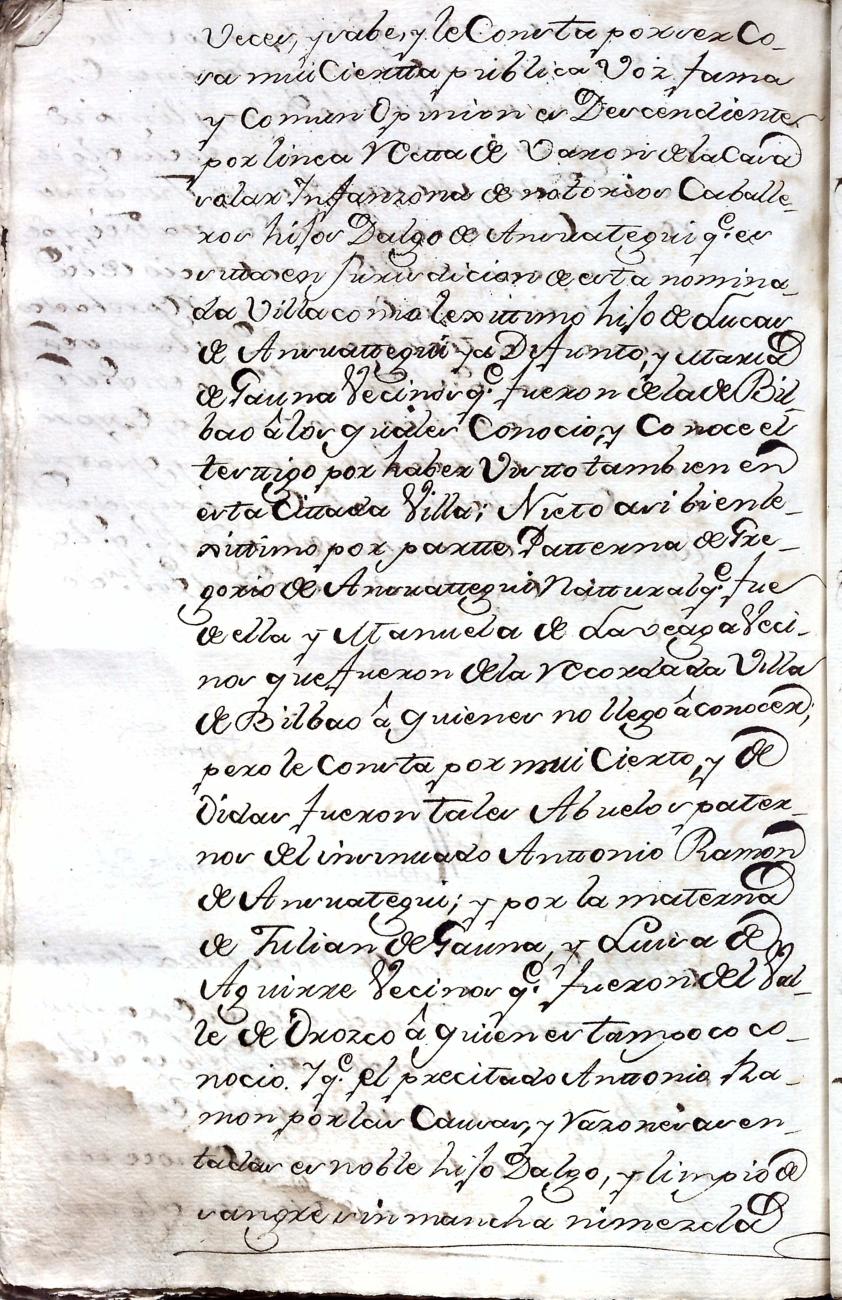 veces, y sabe, y le Consta por ser Co-
sa mui Ciertta publica Voz fama
y Comun Opinion es Descendiente
por linea Rectta de Varon de la Casa
solar Infanzona de notorios Caballe-
ros hijos Dalgo de Ansuategui q.e es
sitta en Jurisdicion de esta nomina-
da Villa como lexittimo hijo de Lucas
de Ansuattegui ya Difunto, y Maria
de Gauna Vecinos q.e fueron de la de Bil-
bao â los quales Conocio, y Conoce el
testtigo por haber Vistto tambien en
esta Cittada Villa; Nieto asi bien le-
xittimo por partte Patterna de Gre-
gorio de Ansuattegui Nattural q.e fue
de ella y Manuela de Laveaga Veci-
nos que fueron de la Recordada Villa
de Bilbao â quienes no llego â conocer,
pero le Consta por mui Cierto, y de
Vidas fueron tales Abuelos pater-
nos del insinuado Anttonio Ramon
de Ansuategui; y por la materna
de Julian de Gauna, y Luisa de
Aguirre Vecinos q.e fueron del Val-
le de Orozco â quienes tampoco co-
nocio. Y q.e el precitado Anttonio Ra-
mon por las Causas, y Razones asen-
tadas es noble hijo Dalgo, y limpio de
sangre sin mancha ni mezcla